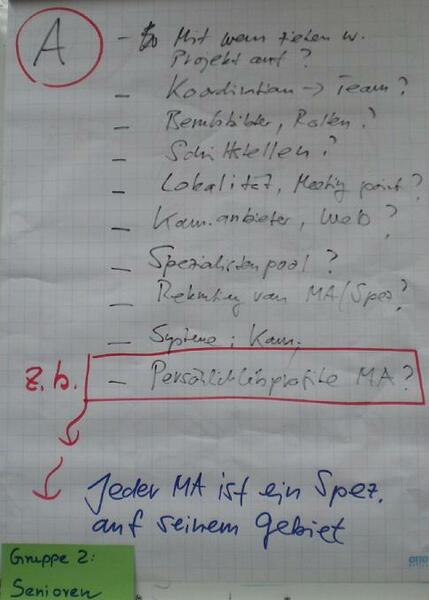 A
- Mit wem ziehen w.
Projekt auf?
- Koordination -> Team?
- Berufsbilder, Rollen?
- Schittstellen?
- Lokalität, Meeting point?
- Kom.anbieter, Web?
- Spezialistenpool?
- Rekruting von MA/Spez?
- Systeme; Kom;
z.b. - Persönlichkeitsprofile MA?
Jeder MA ist ein Spez.
auf seinem Gebiet
Gruppe 2:
Senioren